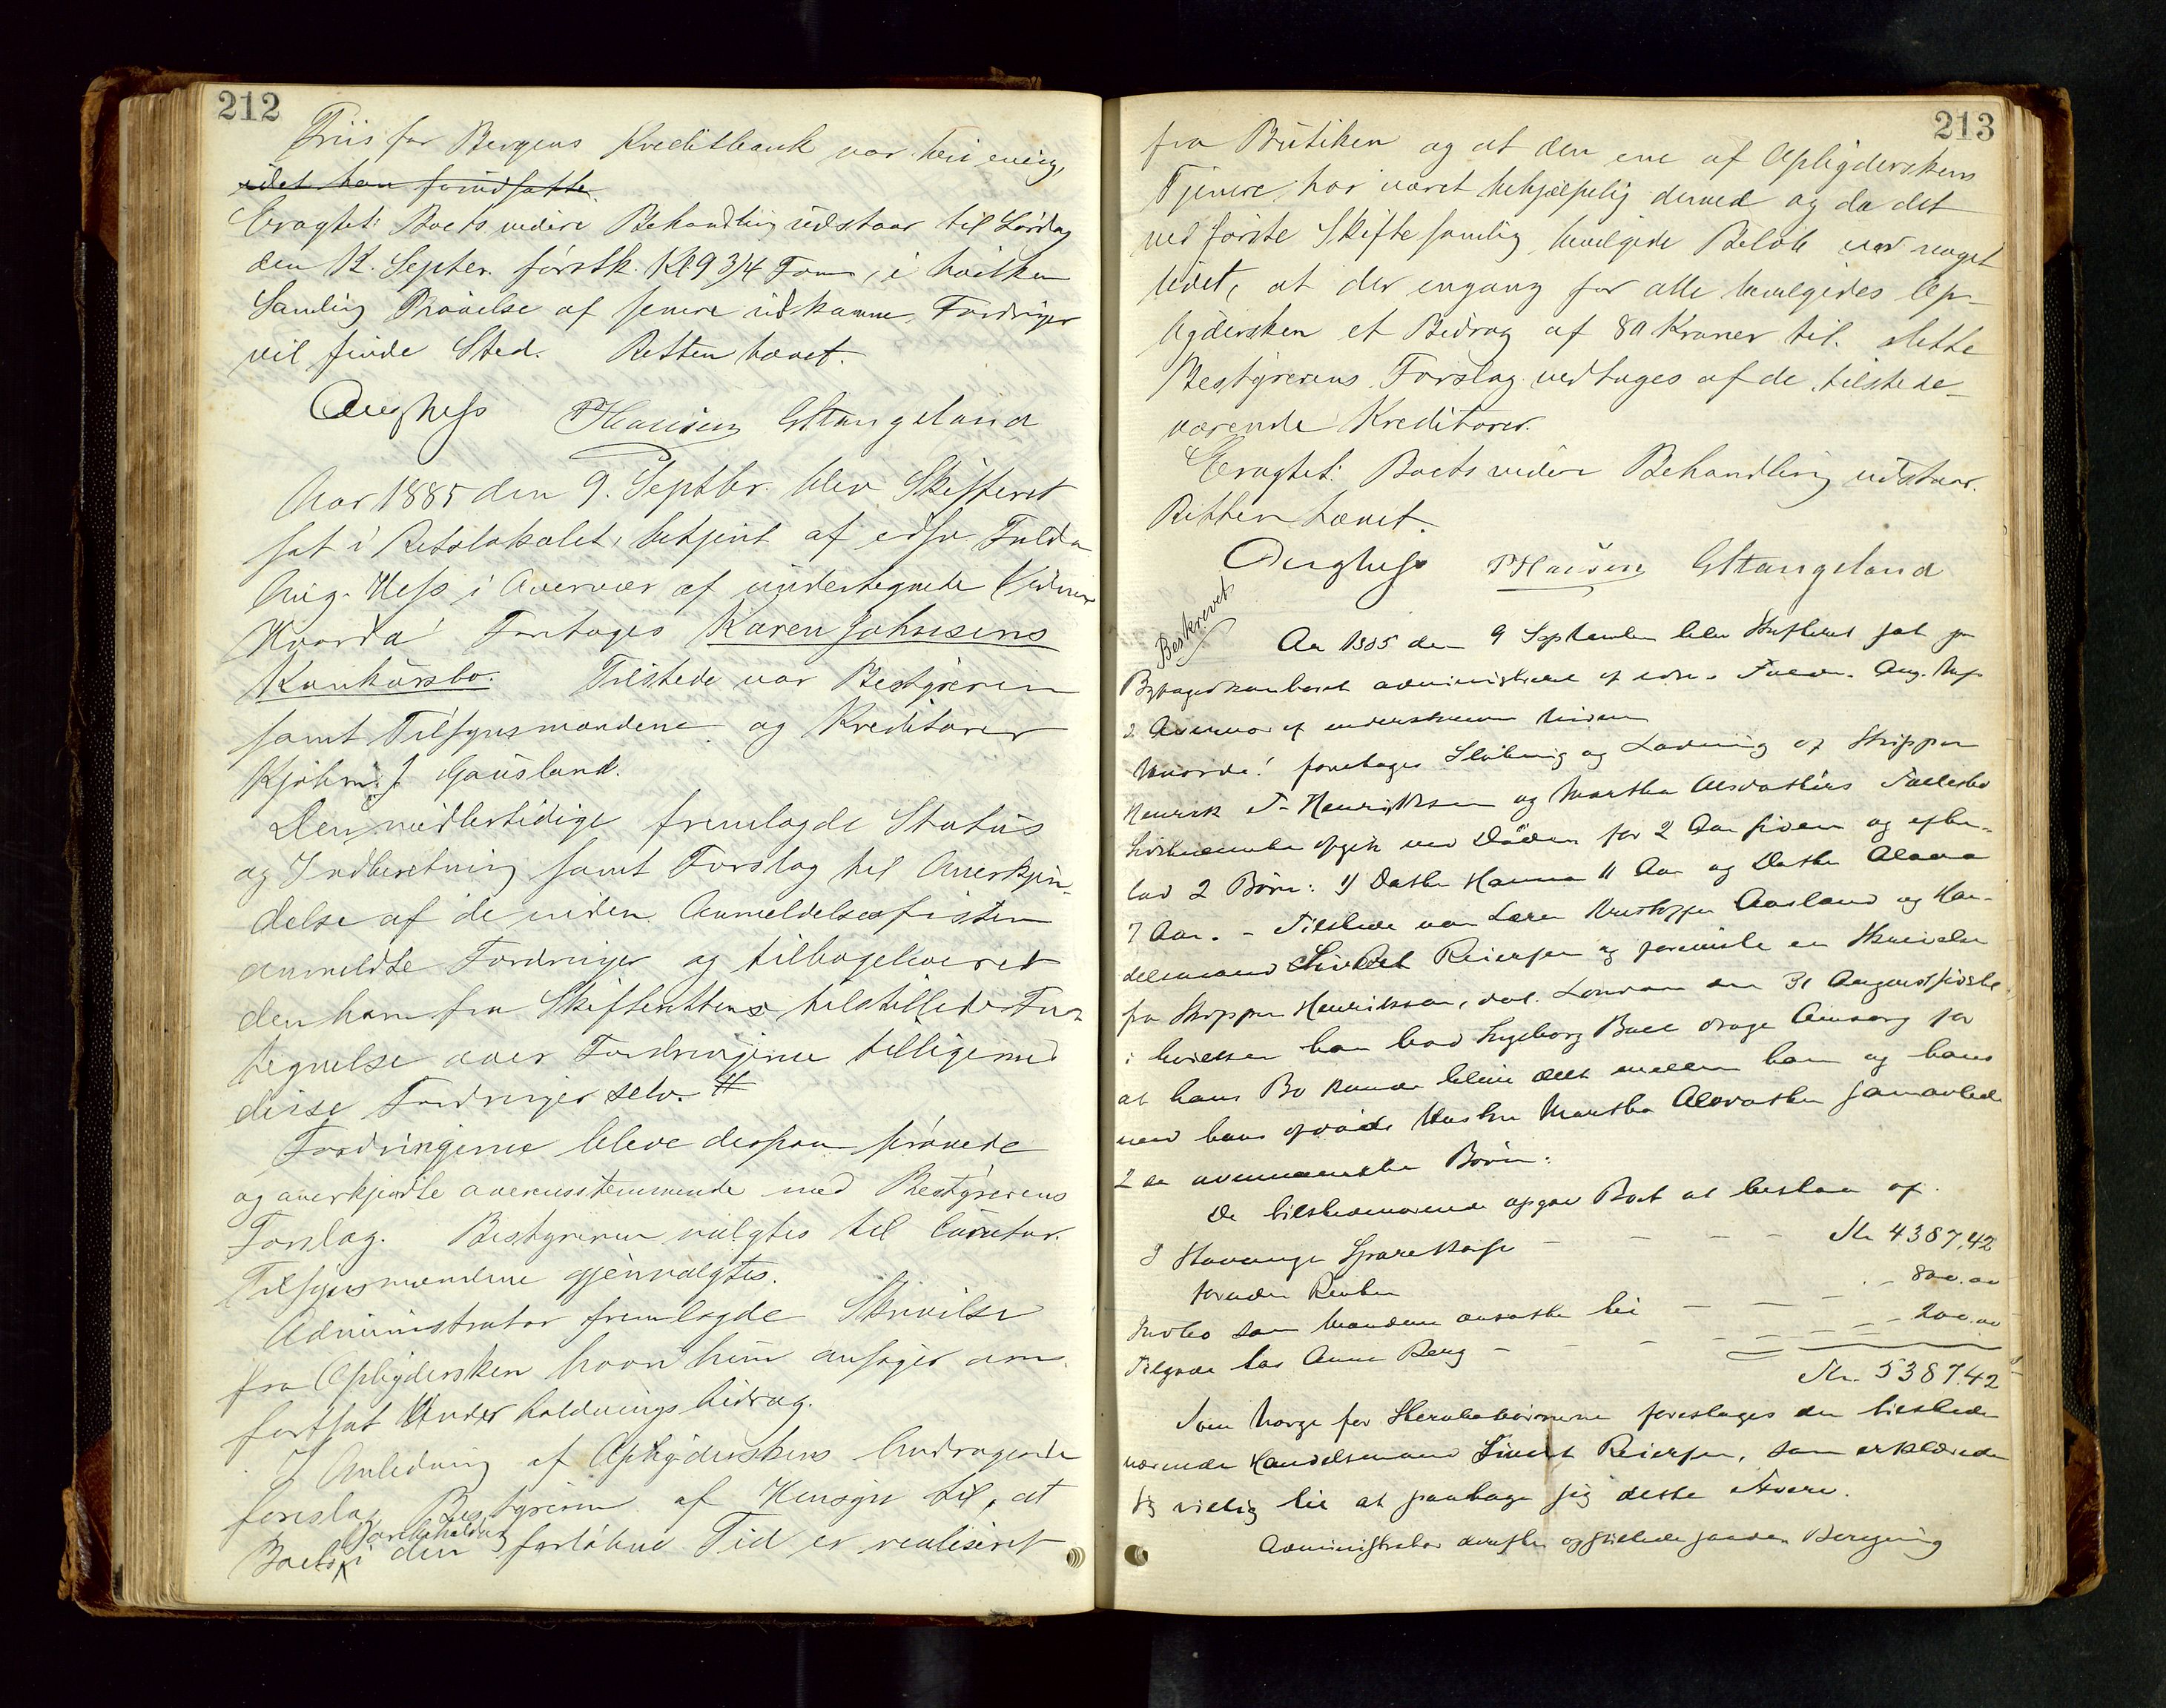 212
Friis for Bergens Kreditbank var heri enig,
idet han forudsatte.
Eragtet: Boets videre Behandling udstaar til Lørdag
den 12. Septer. førstk. Kl. 9 3/4 Form, i hvilken
Samling Prøvelse af senere udkomne Fordringer
vil finde Sted. Retten hævet.
Aug Hess PHansen GStangeland
Aar 1885 den 9. Septbr. blev Skifteret
sat i Retslokalet, betjent af edsv. Fuldm
Aug. Hess i Overvær af undertegnede Vidner
Hvorda! Foretoges Karen Johnsens
Konkursbo. Tilstede var Bestyreren
samt Tilsynsmændene og Kreditorer
Kjøbm. J. Gausland.
Den midlertidige fremlagde Status
og Indberetning samt Forslag til Anerkjen-
delse af de inden Anmeldelsesfristen
anmeldte Fordringer og tilbageleveret
den ham fra Skifterettens tilstillede For
tegnelse over Fordringerne tilligemed
disse Fordringer selv. #
Fordringerne bleve derpaa prøvede
og anerkjendte overensstemmende med Bestyrerens
Forslag. Bestyreren valgtes til Curator.
Tilsynsmændene gjenvalgtes.
Administrator fremlagde Skrivelse
fra Opbydersken hvori hun ansøger om
fortsat Underholdningsbidrag.
I Anledning af Opbyderskens Andragende
foreslog Bestyreren af Hensyn til, at
Varebeholdng
Boets i den forløbne Tid er realiseret
213
fra Butiken og at den ene af Opbyderskens
Tjenere har været behjælpelig dermed og da det
ved første Skiftesamling bevilgede Beløb var noget
lidet, at der engang for alle bevilgedes Op-
bydersken et Bidrag af 80 Kroner til. dette
Bestyrerens Forslag vedtoges af de tilstede-
værende Kreditorer.
Eragtet: Boets videre Behandling udstaar.
Retten hævet.
Aug Hess PHansen GStangeland
Beskrevet
Aar 1885 den 9 September blev Skifteret sat paa
Byfogedkontoret administreret af edsv. Fuldm. Aug. Hess
i Overvær af underskrevne Vidner
Hvorda! foretoges Slutning og Lodning af Skipper
Henrik T. Henriksen og Martha Alsvatters Fællesbo
Sidstnævnte afgik ved Døden for 2 Aar siden og efter-
lod 2 Børn: 1) Datter Hanna 11 Aar og Datter
7 Aar. - Tilstede var Lærer Kristoffer Aasland og Han-
delsmand Sivert Reiersen og foreviste en Skrivelse
fra Skipper Henriksen, dat. London den 31 August sidstl.,
i hvilken han bad Ingeborg Boll drage Omsorg for
at hans Bo kunde blive delt mellem ham og hans
med hans afdøde Hustru Martha Alsvatter sammenavlede
2 de ovennævnte Børn.
De tilstedeværende opgav Boet at bestaa af.
I Stavanger Sparekasse - - - - Kr 4387,42
foruden Renter
Indbo som Manden ansatte til - - - - 800.00
Tilgode hos Anna Berg - - - - 200.00
Kr. 5387.42
Som Værge for Stervbobørnene foresloges den tilstede
værende Handelsmand Sivert Reiersen, som erklærede
sig villig til at paatage sig dette Hverv.
Administrator derefter opstillede saadan Beregning